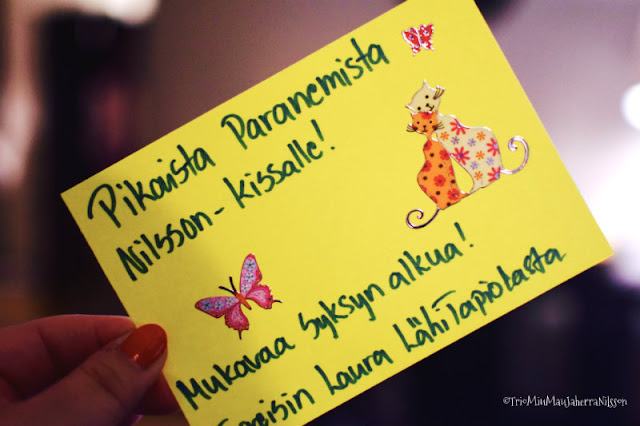 Pikaista Paranemista
Nilsson-kissalle!
Mukavaa syksyn alkua!
Laura LähiTapiolasta
©TrioMiuMauJaherraNilsson